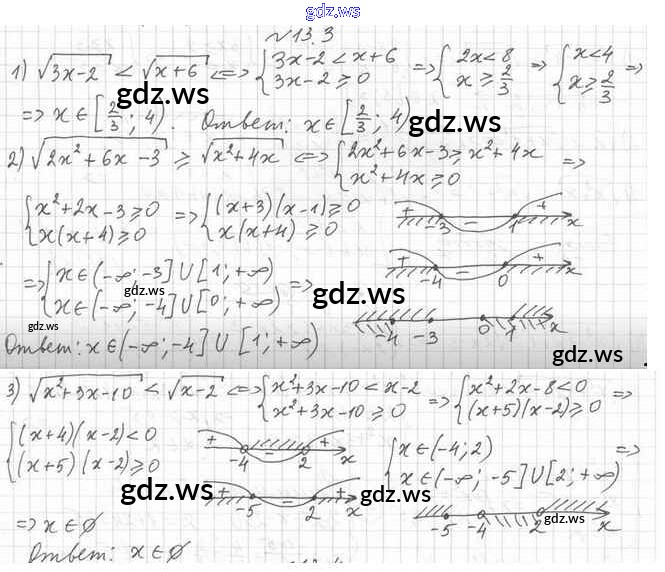 gdz.ws
№13.3
1) √3x-2 < √x+6 <=> { 3x-2 < x+6 3x-2 ≥ 0 => { 2x < 8 x ≥ 2/3 => { x < 4 x ≥ 2/3 =>
=> x ∈ [2/3; 4). Ответ: x ∈ [2/3; 4)
gdz.ws gdz.ws
2) √2x²+6x-3 ≥ √x²+4x <=> { 2x²+6x-3 ≥ x²+4x x²+4x ≥ 0 =>
{ x²+2x-3 ≥ 0 x(x+4) ≥ 0 => { (x+3)(x-1) ≥ 0 x(x+4) ≥ 0
+ -3 - 1 + x
+ -4 - 0 + x
=> { x ∈ (-∞; -3] ∪ [1; +∞) x ∈ (-∞; -4] ∪ [0; +∞) =>
gdz.ws gdz.ws
-4 -3 0 1 x
gdz.ws
Ответ: x ∈ (-∞; -4] ∪ [1; +∞)
gdz.ws
3) √x²+3x-10 < √x-2 <=> { x²+3x-10 < x-2 x²+3x-10 ≥ 0 => { x²+2x-8 < 0 (x+5)(x-2) ≥ 0 =>
{ (x+4)(x-2) < 0 (x+5)(x-2) ≥ 0
+ -4 - 2 + x
+ -5 - 2 + x
{ x ∈ (-4; 2) x ∈ (-∞; -5] ∪ [2; +∞) =>
gdz.ws gdz.ws
-5 -4 2 x
gdz.ws
=> x ∈ ∅
Ответ: x ∈ ∅